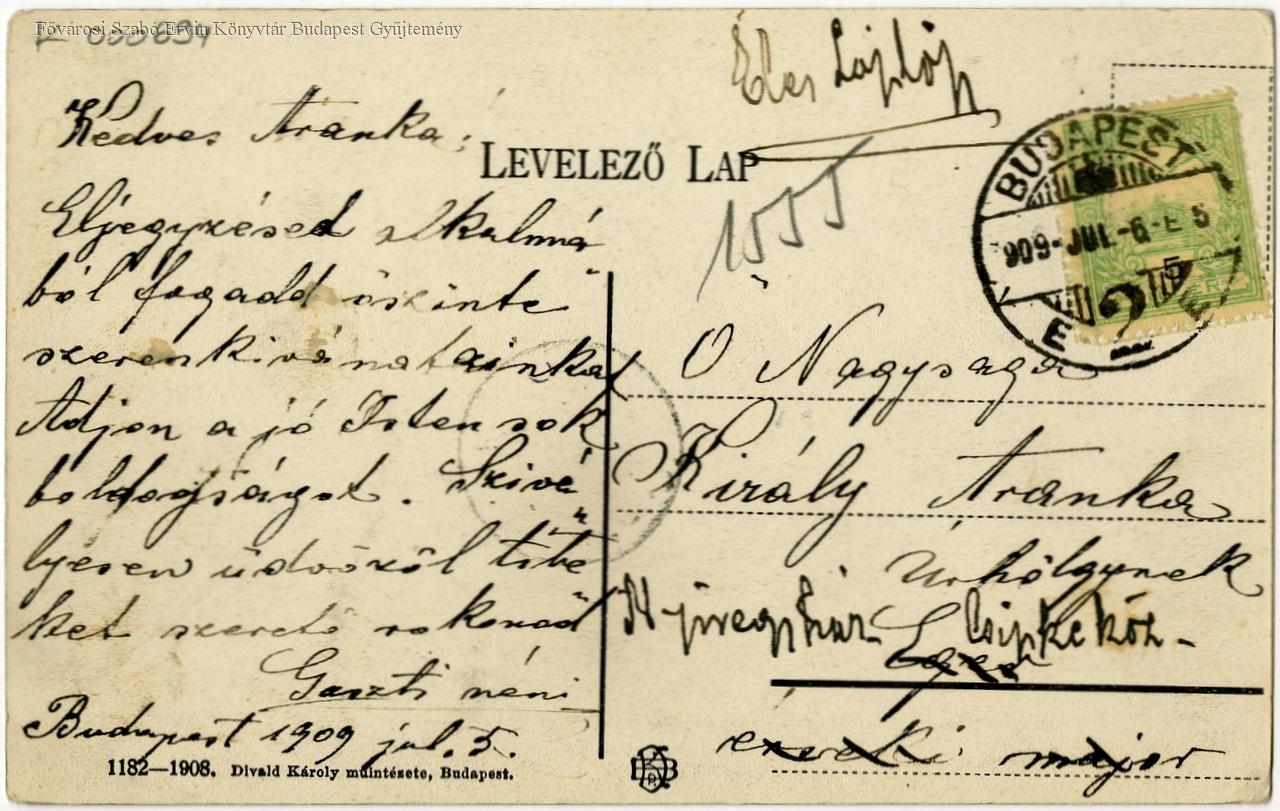 Fővárosi Szabó Ervin Könyvtár Budapest Gyűjtemény
Kedves Aranka!
LEVELEZŐ LAP
1055
BUDAPEST
909-JUL.-6-E 6
Eljegyzésed alkalmá
ból fogadd őszinte
szerenkivánatainkat
Adjon a jó Isten sok
boldogságot. Szivé
lyesen üdvözöl tite
ket szerető rokonod
Gaszti néni
Budapest 1909 jul. 5.
Ő Nagysága
Király Aranka
Urhölgynek
Eger
major
1182—1908. Divald Károly műintézete, Budapest.